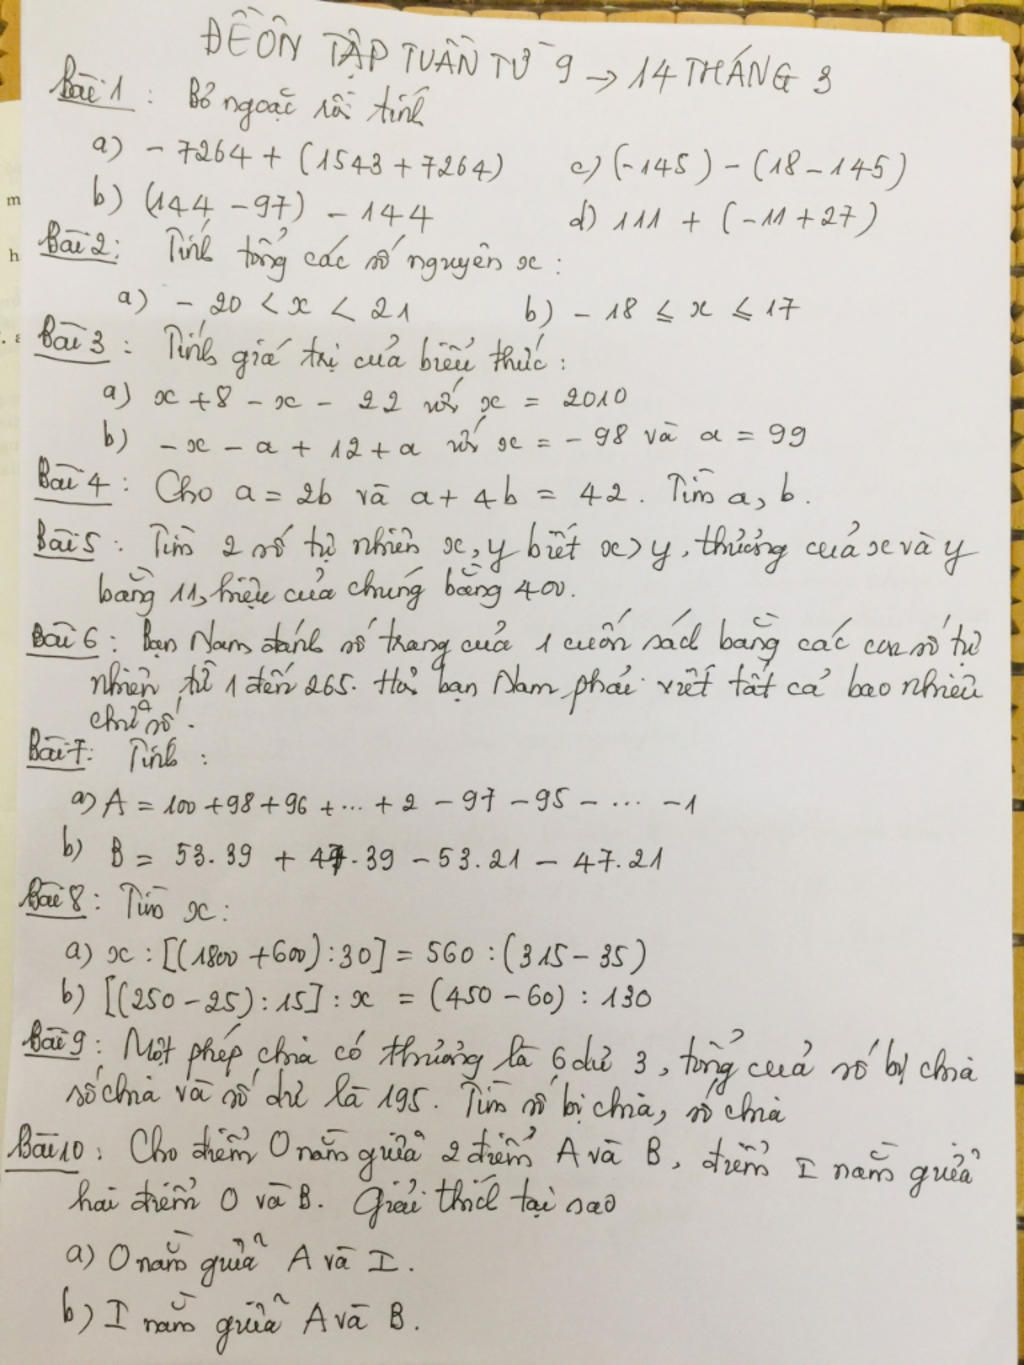 ĐỀ ÔN TẬP TUẦN TỪ 9 → 14 THÁNG 3
Bài 1 : Bỏ ngoặc rồi tính
a) - 7264 + (1543 + 7264)
c) (-145) - (18 - 145)
b) (144 - 97) - 144
d) 111 + (-11 + 27)
Bài 2: Tính tổng các số nguyên x :
a) - 20 < x < 21
b) - 18 ≤ x ≤ 17
Bài 3 : Tính giá trị của biểu thức :
a) x + 8 - x - 22 với x = 2010
b) - x - a + 12 + a với x = - 98 và a = 99
Bài 4 : Cho a = 2b và a + 4b = 42. Tìm a, b.
Bài 5 : Tìm 2 số tự nhiên x, y biết x > y, thương của x và y
bằng 11, hiệu của chúng bằng 400.
Bài 6 : Bạn Nam đánh số trang của 1 cuốn sách bằng các con số tự
nhiên từ 1 đến 265. Hỏi bạn Nam phải viết tất cả bao nhiêu
chữ số.
Bài 7: Tính :
a) A = 100 + 98 + 96 + ... + 2 - 97 - 95 - ... - 1
b) B = 53.39 + 47.39 - 53.21 - 47.21
Bài 8 : Tìm x :
a) x : [(1800 + 600) : 30] = 560 : (315 - 35)
b) [(250 - 25) : 15] : x = (450 - 60) : 130
Bài 9 : Một phép chia có thương là 6 dư 3, tổng của số bị chia
số chia và số dư là 195. Tìm số bị chia, số chia
Bài 10 : Cho điểm O nằm giữa 2 điểm A và B, điểm I nằm giữa
hai điểm O và B. Giải thích tại sao
a) O nằm giữa A và I.
b) I nằm giữa A và B.